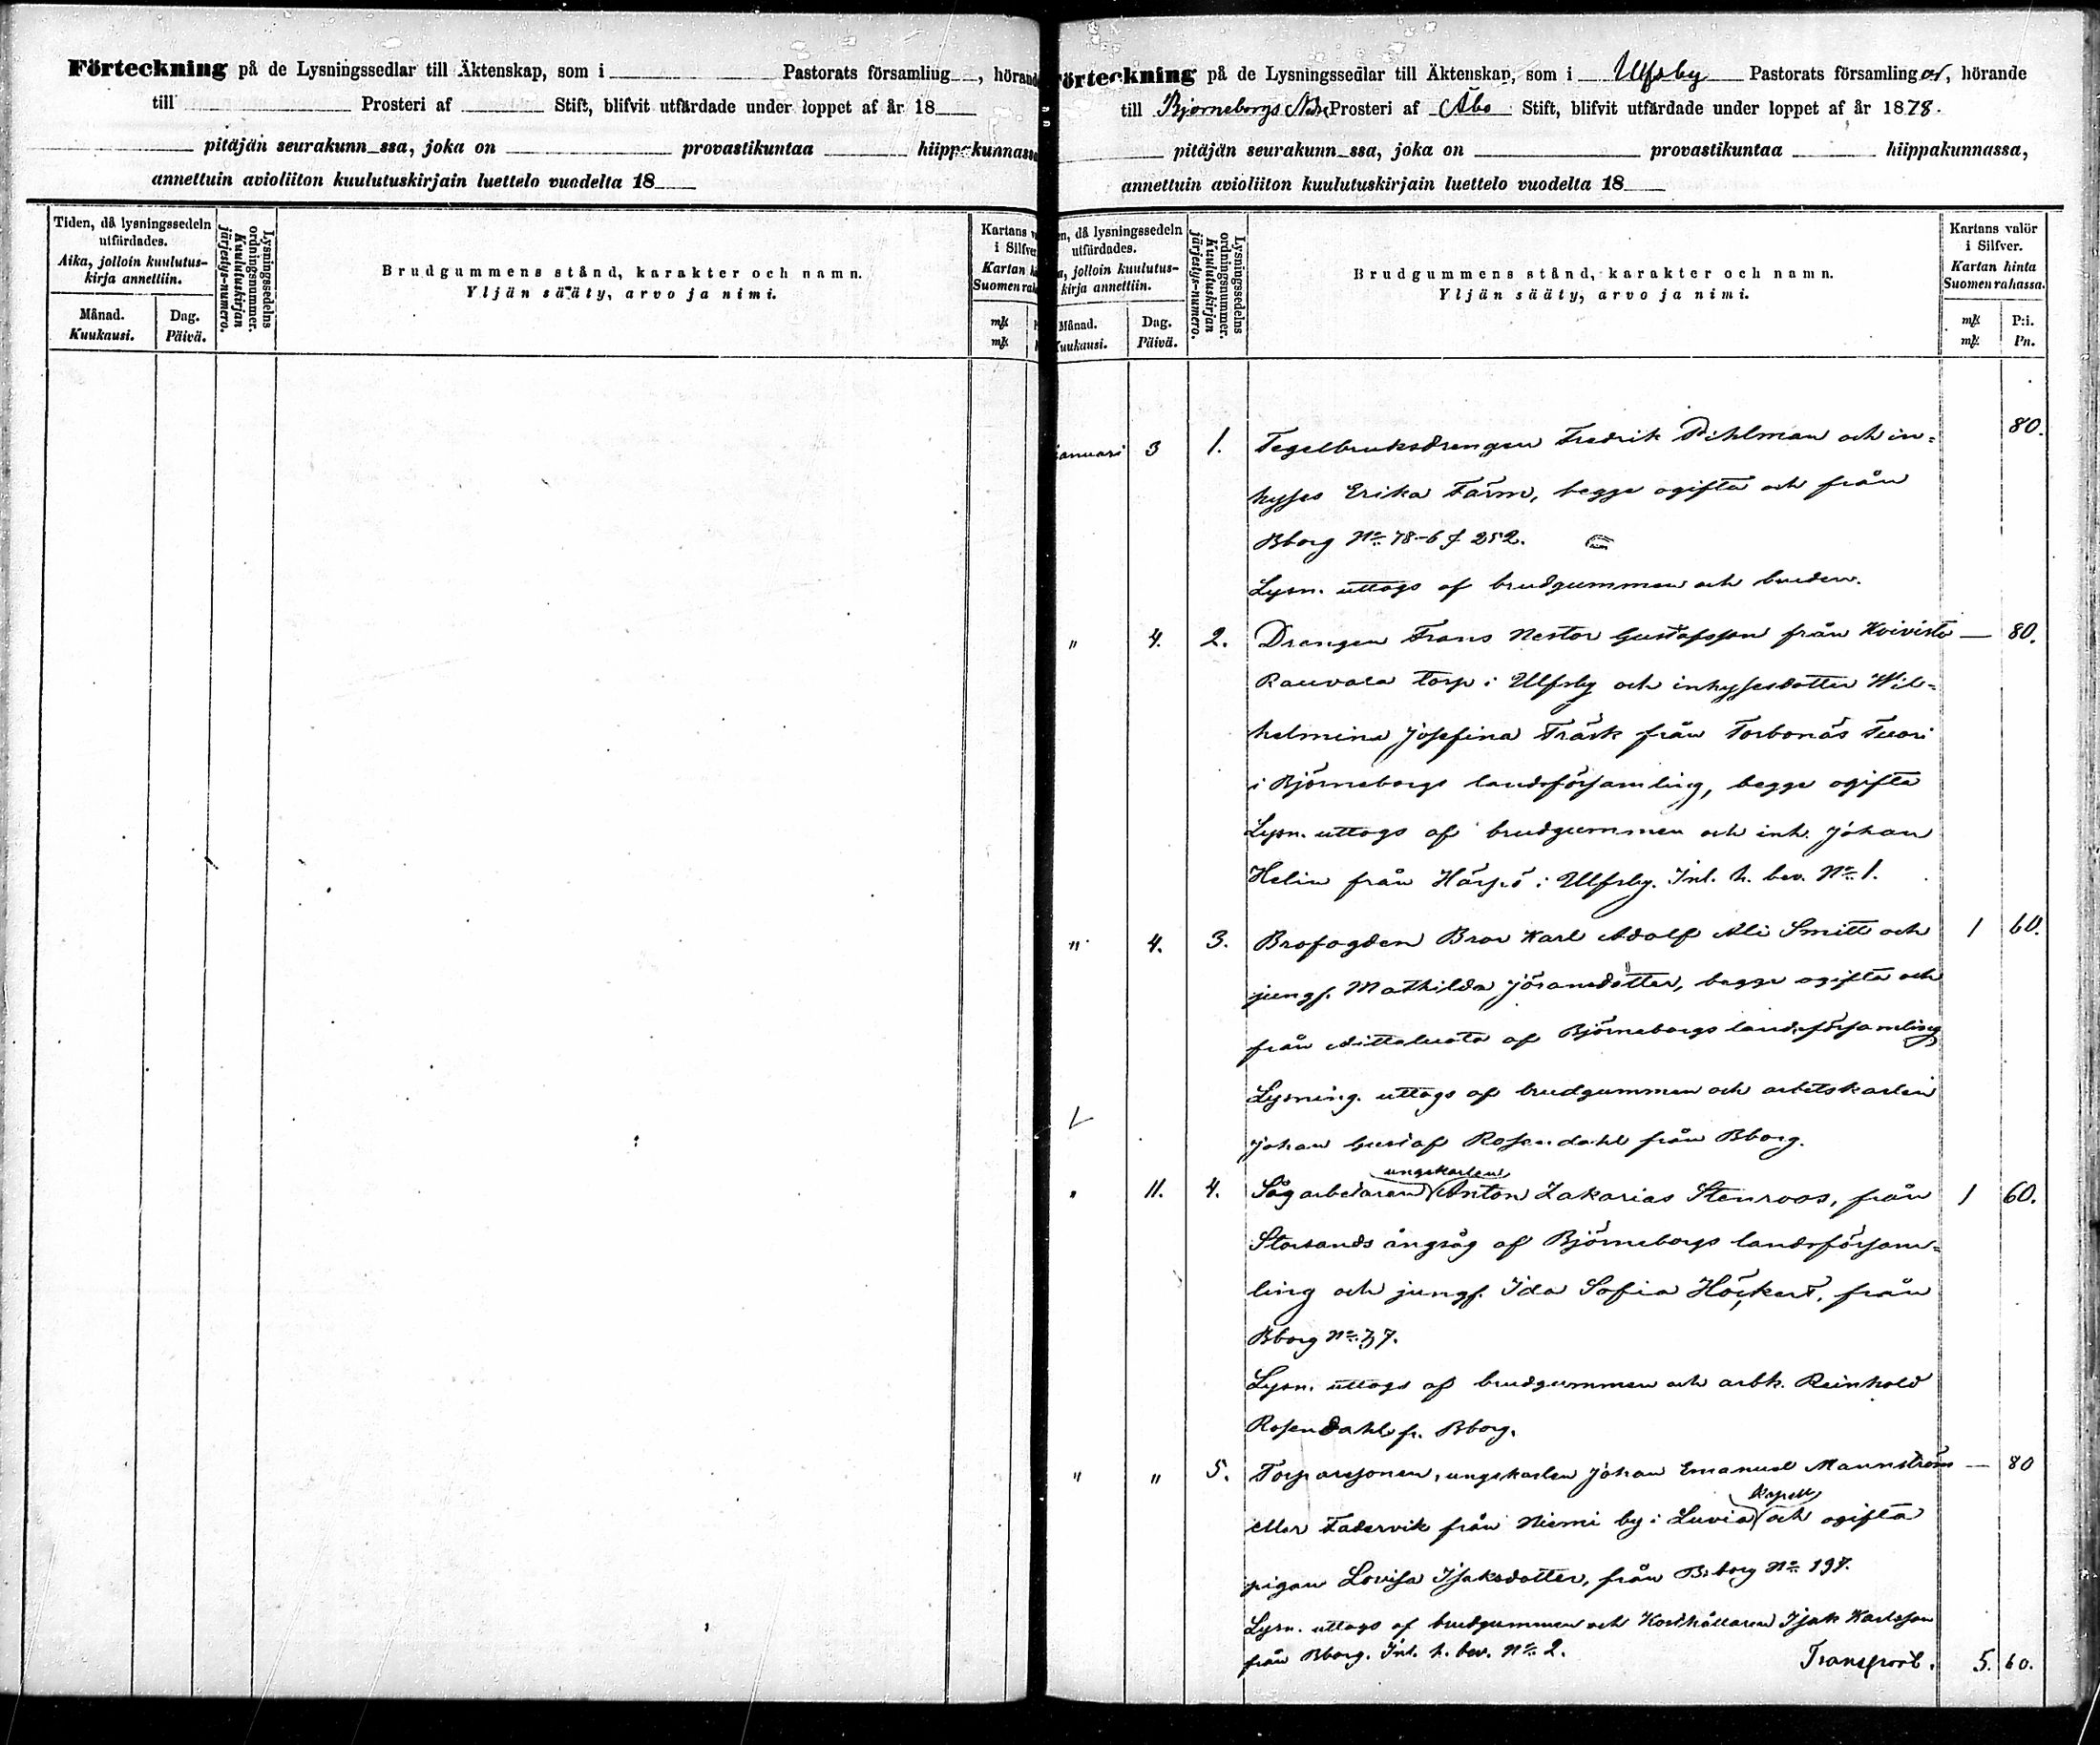 Förteckning på de Lysningssedlar till Äktenskap, som i Pastorats församling , hörande
till Prosteri af Stift, blifvit utfärdade under loppet af år 18
pitäjän seurakunn ssa, joka on provastikuntaa hiippakunnassa
annettuin avioliiton kuulutuskirjain luettelo vuodelta 18
Tiden, då lysningssedeln
utfärdades.
Aika, jolloin kuulutus-
kirja annettiin.
Månad.
Kuukausi.
Dag.
Päivä.
Lysningssedelns
ordningsnummer.
Kuulutuskirjan
järjestys-numero.
Brudgummens stånd, karakter och namn.
Yljän sääty, arvo ja nimi.
Kartans
i Silfver
Kartan
Suomen
mk
mk
Förteckning på de Lysningssedlar till Äktenskap, som i Ulfsby Pastorats församlingar, hörande
till Björneborgs Prosteri af Åbo Stift, blifvit utfärdade under loppet af år 1878.
pitäjän seurakunn ssa, joka on provastikuntaa hiippakunnassa,
annettuin avioliiton kuulutuskirjain luettelo vuodelta 18
då lysningssedeln
utfärdades.
jolloin kuulutus-
kirja annettiin.
Månad.
Kuukausi.
Dag.
Päivä.
Lysningssedelns
ordningsnummer.
Kuulutuskirjan
järjestys-numero.
Brudgummens stånd, karakter och namn.
Yljän sääty, arvo ja nimi.
Kartans valör
i Silfver.
Kartan hinta
Suomen rahassa.
mk P:i.
mk. Pn.
januari 3 1. Tegelbruksdrengen Fredrik Pihlman och in= 80.
hyses Erika Färm, begge ogifta och från
Bborg No 78-6 f 252.
Lysn. uttogs af brudgummen och bruden.
" 4. 2. Drengen Frans Nestor Gustafsson från Koivisto — 80.
Rauvala torp i Ulfsby och inhysesdotter Wil=
helmina Josefina Träsk från Torbonäs Tuori
i Björneborgs landsförsamling, begge ogifta
Lysn. uttogs af brudgummen och inh. Johan
Helin från Härpö i Ulfsby. Inl. h. bev. No 1.
" 4. 3. Brofogden Bror Karl Adolf Ali Smitt och 1 60.
jungf. Mathilda Jöransdotter, begge ogifta och
från Aittaluoto af Björneborgs landsförsamling
Lysning. uttogs af brudgummen och arbetskarlen
Johan Gustaf Rosendahl från Bborg.
ungkarlen
" 11. 4. Sågarbetaren Anton Zakarias Stenroos, från 1 60.
Storsands ångsåg af Björneborgs landsförsam=
ling och jungf. Ida Sofia Höckert, från
Bborg No 37.
Lysn. uttogs af brudgummen och arbk. Reinhold
Rosendahl fr. Bborg.
" " 5. Torparesonen, ungkarlen Johan Emanuel Mannström — 80
kapell
eller Fadervik från Niemi by i Luvia och ogifta
pigan Lovisa Isaksdotter, från B:borg No 197.
Lysn. uttogs af brudgummen och Isak Karlsson
från Bborg. Inl. h. bev. No 2.
Transport. 5. 60.